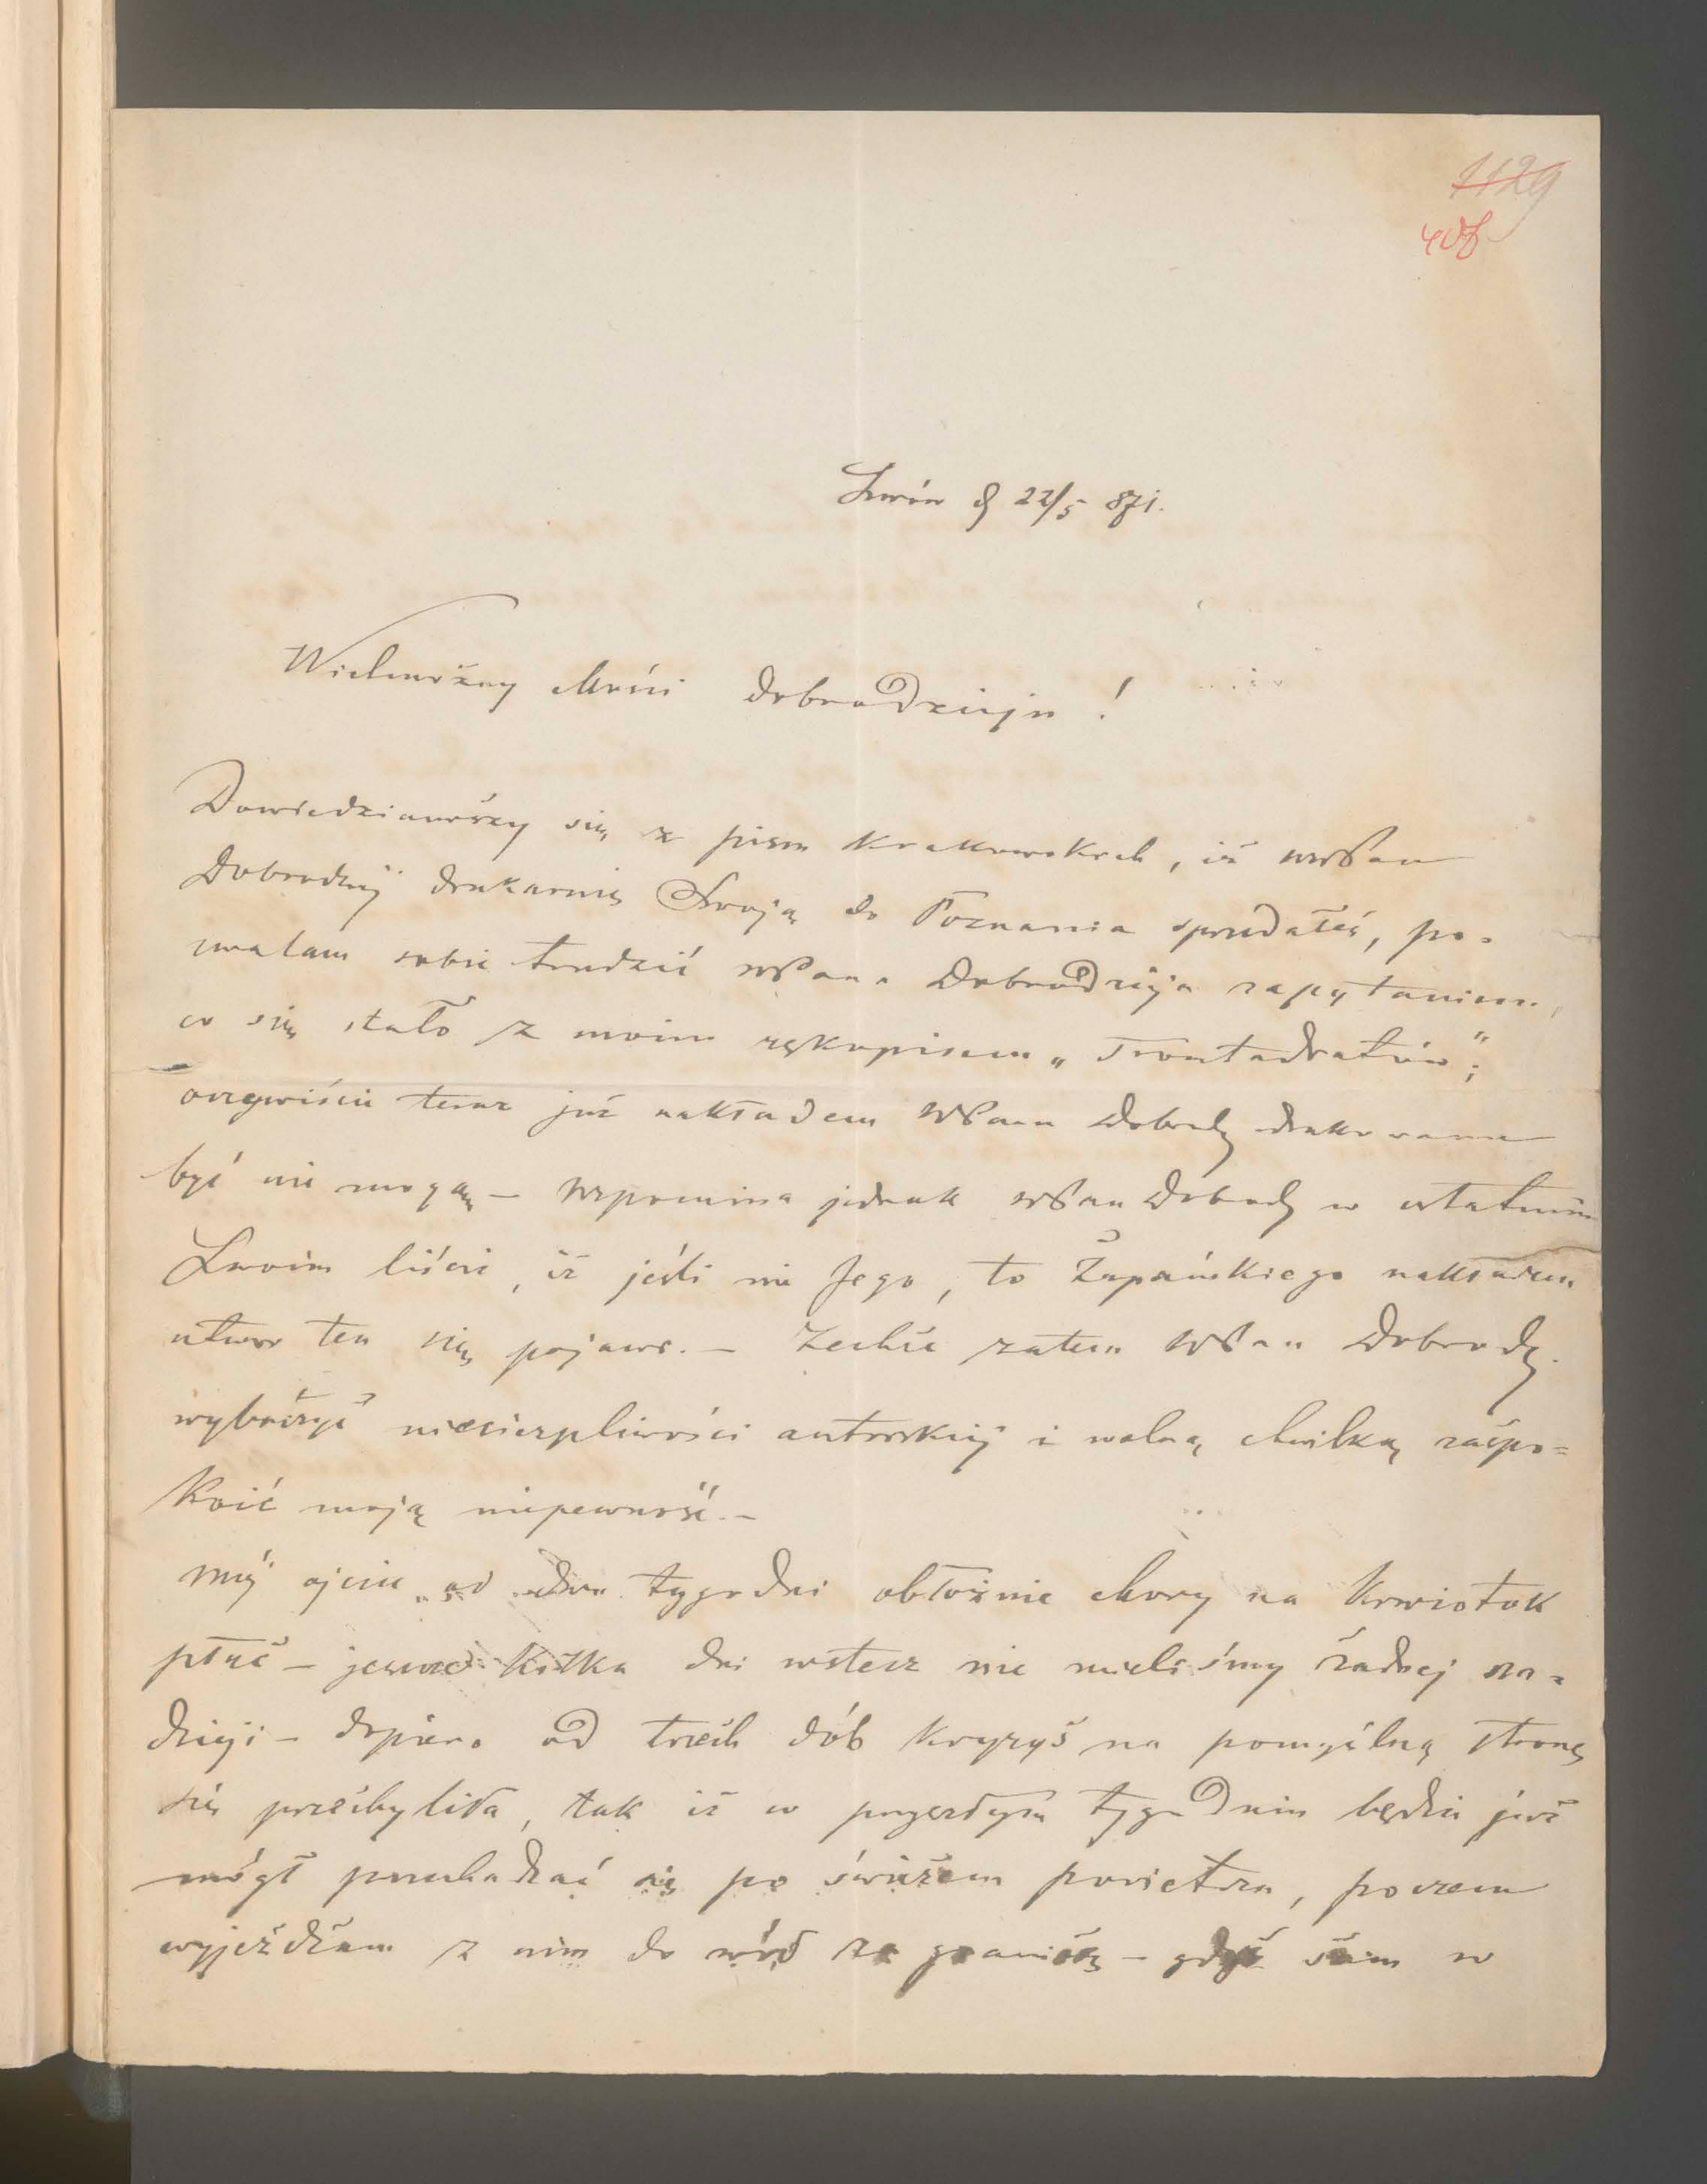 1129
408
Lwów d 22/5 871.
Wielmożny Mości Dobrodzieju !
Dowiedziawszy się z pism krakowskich, iż WPan
Dobrodziej drukarnię Swoją do Poznania sprzedałeś, po-
zwalam sobie trudzić WPana Dobrodzieja zapytaniem,
co się stało z moim rękopisem „Trontadratów";
oczywiście teraz już nakładem WPana Dobrodz drukowane
być nie mogą — wspomina jednak WPan Dobrodz w ostatnim
Swoim liście, iż jeśli nie Jego, to Żupańskiego nakładem
utwór ten się pojawi. — Zechće zatem WPan Dobrodz.
wybaczyć niecierpliwości autorskiéj i wolną chwilką zaspo=
koić moją niepewność. —
Mój ojciec od dwu tygodni obłożnie chory na krwiotok
płuc — jeszcze kilka dni wstecz nie mieliśmy żadnej na=
dzieji — dopiero od trzech dób kryzys na pomyślną stronę
się przechyliła, tak iż w przyszłym tygodniu będzie już
mógł przechadzać się po świeżem powietrzu, poczem
wyjeżdżam z nim do wód za granicę — gdyż sam w